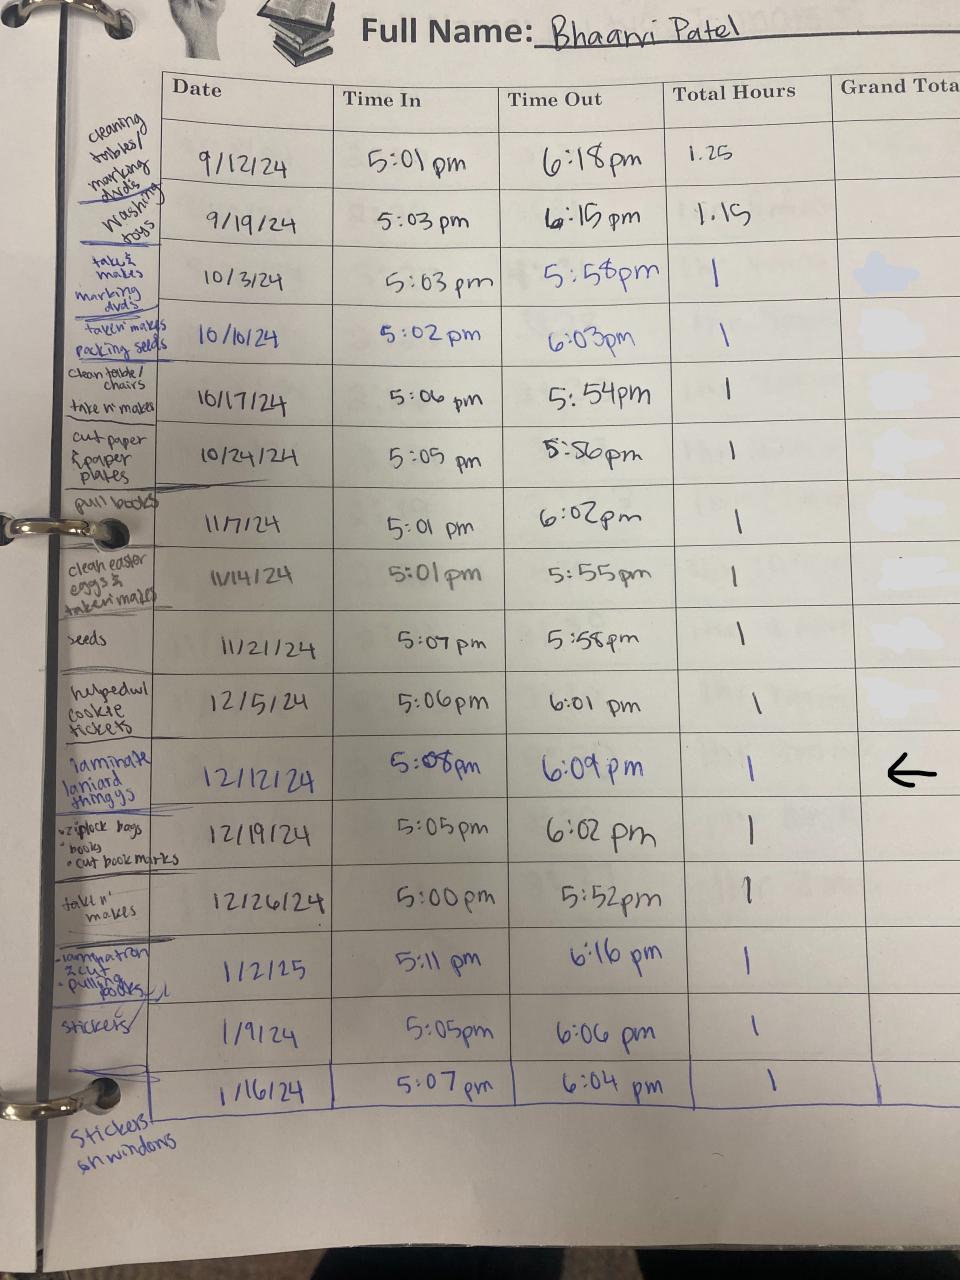 Full Name: Bhaanvi Patel
Date Time In Time Out Total Hours Grand Tota
cleaning
tables/
marking
dvds
9/12/24 5:01 pm 6:18pm 1.25
washing
toys
9/19/24 5:03 pm 6:15 pm 1.15
take &
makes
marking
dvds
10/3/24 5:03 pm 5:58pm 1
take n' makes
packing seeds
10/10/24 5:02 pm 6:03pm 1
clean table/
chairs
take n' makes
10/17/24 5:06 pm 5:54pm 1
cut paper
& paper
plates
10/24/24 5:05 pm 5:56pm 1
pull books
11/7/24 5:01 pm 6:02pm 1
clean easter
eggs &
take n' makes
11/14/24 5:01pm 5:55pm 1
seeds
11/21/24 5:07pm 5:58pm 1
helped w/
cookie
tickets
12/5/24 5:06pm 6:01 pm 1
laminate
laniard
thingys
12/12/24 5:08pm 6:09pm 1
ziplock bags
books
cut book marks
12/19/24 5:05pm 6:02 pm 1
take n'
makes
12/26/24 5:00pm 5:52pm 1
& cut
pulling
books
1/2/25 5:11 pm 6:16 pm 1
stickers
1/9/24 5:05pm 6:06 pm 1
1/16/24 5:07 pm 6:04 pm 1
stickers
on windows